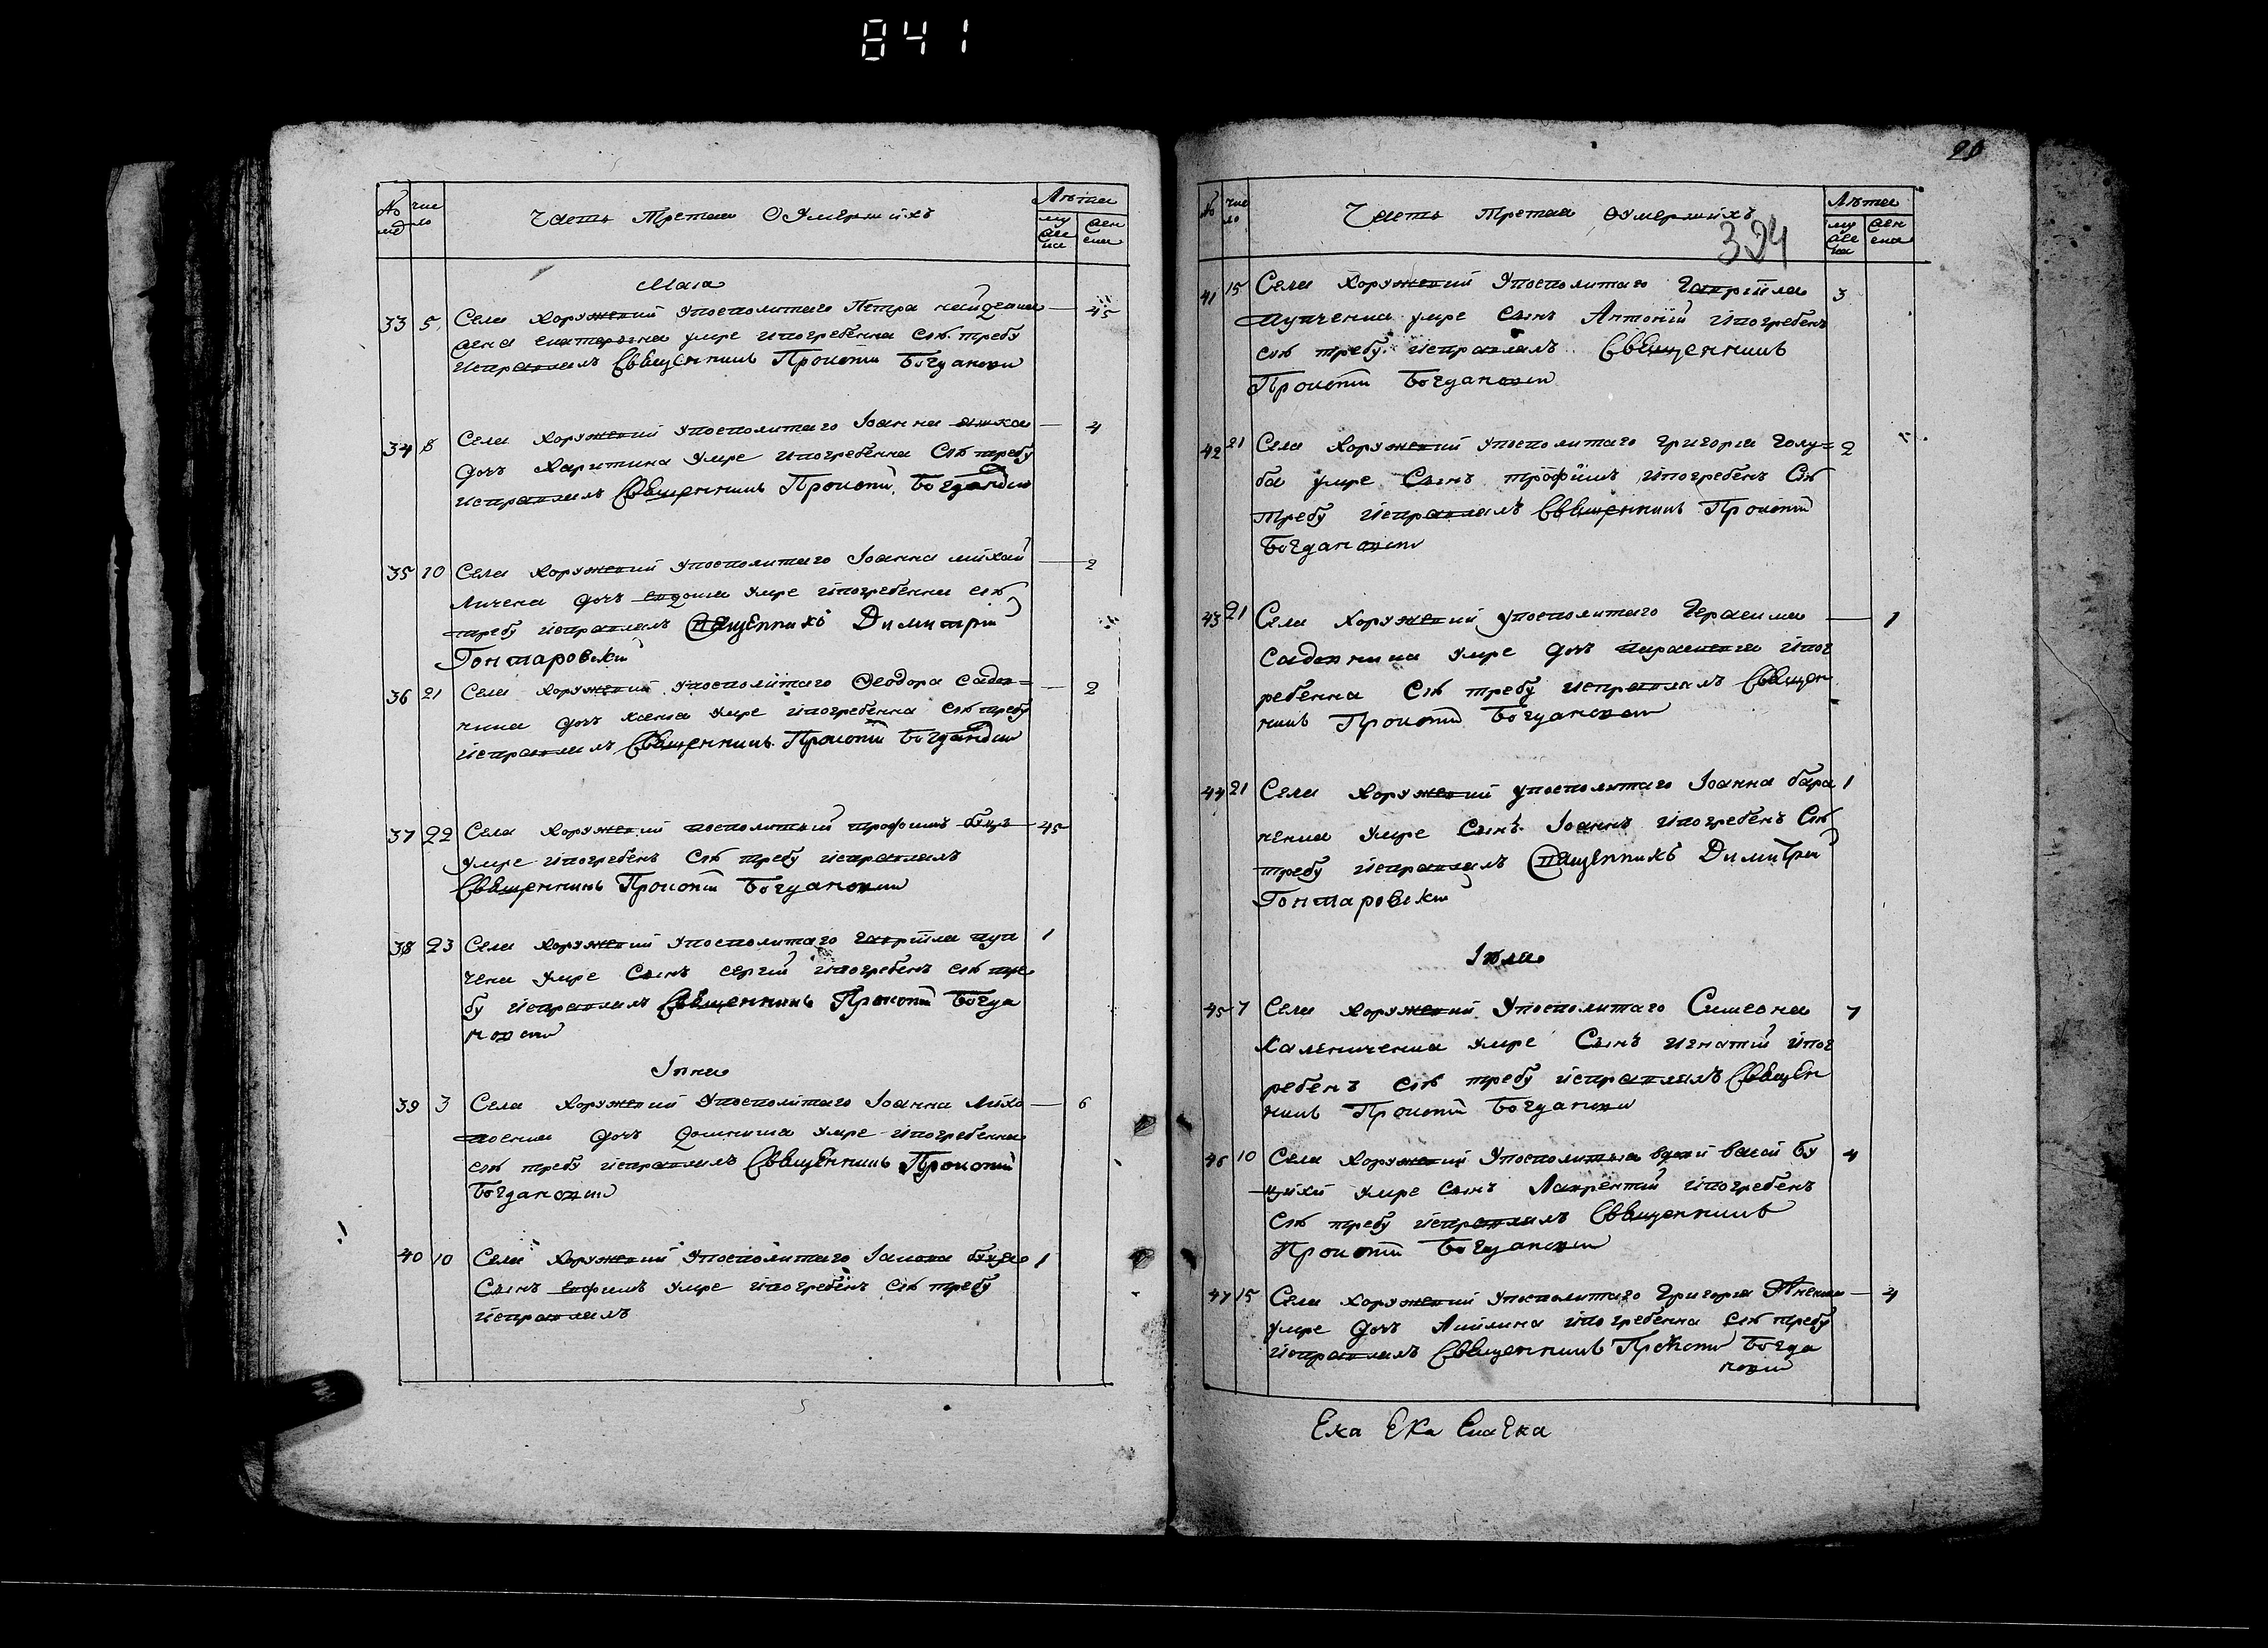 841
№ число Часть Третая О Умершихъ Лѣта
мужеска женска
Маіа
33 5 Села Хоружевки Упосполитаго Петра
жена умре ипогребенна сію требу 45
исправлялъ Священникъ Прокопій Богдановскій
34 8 Села Хоружевки Упосполитаго Іоанна 4
дочь Харитина умре ипогребенна Сію требу
исправлялъ Священникъ Прокопій Богдановскій
35 10 Села Хоружевки Упосполитаго Іоанна михай 2
личенка дочь евдокиа умре ипогребенна сію
требу исправлялъ Священникъ Димитрій
Гонтаровскій
36 21 Села Хоружевки Упосполитаго Феодора садов= 2
ника дочь ксения умре ипогребенна Сію требу
исправлялъ Священникъ Прокопій Богдановскій
37 22 Села Хоружевки посполитый трофимъ буцъ 45
умре ипогребенъ Сію требу исправлялъ
Священникъ Прокопій Богдановскій
38 23 Села Хоружевки Упосполитаго гавріила куп 1
ченка умре Сынъ сергій ипогребенъ сію тре
бу исправлялъ Священникъ Прокопій Богда
новскій
Іюня
39 3 Села Хоружевки Упосполитаго Іоанна 6
дочь домникиа умре ипогребенна
сію требу исправлялъ Священникъ Прокопій
Богдановскій
40 10 Села Хоружевки Упосполитаго Іакова буца 1
Сынъ ефимъ умре ипогребенъ Сію требу
исправлялъ
№ число Часть Третая О умершихъ Лѣта
мужеска женска
324
41 15 Села Хоружевки Упосполитаго Гавріила 3
купченка умре Сынъ Антоній ипогребенъ
сію требу исправлялъ Священникъ
Прокопій Богдановскій
42 21 Села Хоружевки Упосполитаго григориа голу= 2
ба умре Сынъ трофимъ ипогребенъ Сію
требу исправлялъ Священникъ Прокопій
Богдановскій
43 21 Села Хоружевки Упосполитаго Герасима 1
Садовника умре дочь параскевиа ипог
ребенна Сію требу исправлялъ Священ
никъ Прокопій Богдановскій
44 21 Села Хоружевки Упосполитаго Іоанна бара 1
ненка умре Сынъ Іоаннъ ипогребенъ Сію
требу исправлялъ Священникъ Димитрій
Гонтаровскій
Іюля
45 7 Села Хоружевки Упосполитаго Симеона 7
Калениченка умре Сынъ игнатій ипог
ребенъ сію требу исправлялъ Священ
никъ Прокопій Богдановскій
46 10 Села Хоружевки Упосполитыа вдовы васой бу 4
цихи умре Сынъ Лаврентій ипогребенъ
Сію требу исправлялъ Священникъ
Прокопій Богдановскій
47 15 Села Хоружевки Упосполитаго Григориа 4
умре дочь Акилина ипогребенна Сію требу
исправлялъ Священникъ Прокопій Богда
новскій
Ека Ека